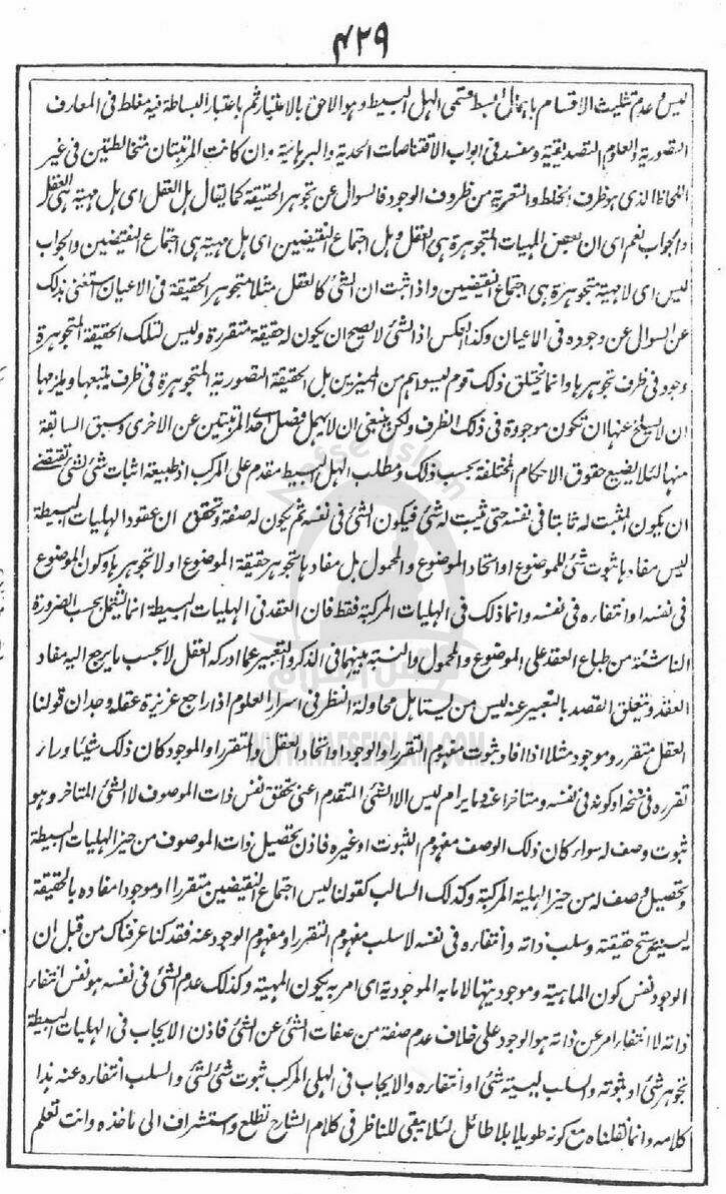 ۴۲۹
ليس وعدم تثليث الاقسام باہمال ابسط قسمى الہل البسيط وہو الاحق بالاعتبار ثم باعتبار البساطة فيہ مغلط فى المعارف
التصورية والعلوم التصديقية ومفسد فى ابواب الاقتناصات الحدية والبرہانية وان كانت المرتبتان متخالطتين فى غير
اللحاظ الذى ہو ظرف الخلط والتعرية من ظروف الوجود فالسوال عن تجوہر الحقيقة كما يقال ہل العقل اى ہل مہية ہى العقل
والجواب نعم اى ان بعض المہيات المتجوہرة ہى العقل وہل اجتماع النقيضين اى ہل مہية ہى اجتماع النقيضين والجواب
ليس اى لا مہية متجوہرة ہى اجتماع النقيضين واذا ثبت ان الشئ كالعقل مثلا متجوہر الحقيقة فى الاعيان استغنى بذلك
عن السوال عن وجودہ فى الاعيان وكذا العكس اذ الشئ لا يصح ان يكون لہ حقيقة متقررة وليس لتلك الحقيقة المتجوہرة
وجود فى ظرف تجوہرہا وانما يختلق ذلك قوم ليسوا ہم من المميزين بل الحقيقة التصورية المتجوہرة فى ظرف يتبعہا ويلزمہا
ان لا ينسلخ عنہا ان تكون موجودة فى ذلك الظرف ولكن ينبغى ان لا يہمل فصل احد المرتبتين عن الاخرى وسبق السابقة
منہا لئلا يضيع حقوق الاحكام المختلفة بحسب ذلك ومطلب الہل البسيط مقدم على المركب اذ طبيعة اثبات شئ لشئ تقتضى
ان يكون المثبت لہ ثابتا فى نفسہ حتى يثبت لہ شئ فيكون الشئ فى نفسہ ثم يكون لہ صفة وتحقق ان عقود الہليات البسيطة
ليس مفادہا ثبوت شئ للموضوع او اتحاد الموضوع والمحمول بل مفادہا تجوہر حقيقة الموضوع او لا تجوہرہا وكون الموضوع
فى نفسہ او انتفارہ فى نفسہ وانما ذلك فى الہليات المركبة فقط فان العقد فى الہليات البسيطة انما يشتمل بحسب الضرورة
الناشئة من طباع العقد على الموضوع والمحمول والنسبة بينہما فى الذكر والتعبير عما ادركہ العقل لا بحسب ما يرجع اليہ مفاد
العقد ويتعلق القصد بالتعبير عنہ ليس من يستاہل محاولة النظر فى اسرار العلوم اذا راجع غريزة عقلہ وجد ان قولنا
العقل متقرر وموجود مثلا اذا افاد ثبوت مفہوم التقرر او الوجود او اتحاد العقل والمتقرر او الموجود كان ذلك شيئا وراء
تقررہ فى سنخہ او كونہ فى نفسہ ومتاخرا عنہ وما يرام ليس الا الشئ المتقدم اعنى تحقق نفس ذات الموصوف لا الشئ المتاخر وہو
ثبوت وصف لہ سواء كان ذلك الوصف مفہوم الثبوت او غيرہ فاذن تحصيل ذات الموصوف من حيز الہليات البسيطة
وتحصيل وصف لہ من حيز الہلية المركبة وكذلك السالب كقولنا ليس اجتماع النقيضين متقررا او موجودا مفادہ بالحقيقة
حقيقتہ وسلب ذاتہ وانتفارہ فى نفسہ لا سلب مفہوم التقرر او مفہوم الوجود عنہ فقد كنا عرفناك من قبل ان
الوجود نفس كون الماہية وموجوديتہا لا ما بہ الموجودية اى امر بہ يكون المہية وكذلك عدم الشئ فى نفسہ ہو نفس انتفاء
ذاتہ لا انتفاء امر عن ذاتہ ہو الوجود على خلاف عدم صفة من صفات الشئ عن الشئ فاذن الايجاب فى الہليات البسيطة
تجوہر شئ او ثبوتہ والسلب ليسية شئ او انتفارہ والايجاب فى الہلى المركب ثبوت شئ لشئ والسلب انتفارہ عنہ ہذا
كلامہ وانما نقلناہ مع كونہ طويلا بلا طائل لئلا يبقى للناظر فى كلام الشارح تطلع واستشراف الى ماخذہ وانت تعلم
Nafse Islam
WWW.NAFSEISLAM.COM